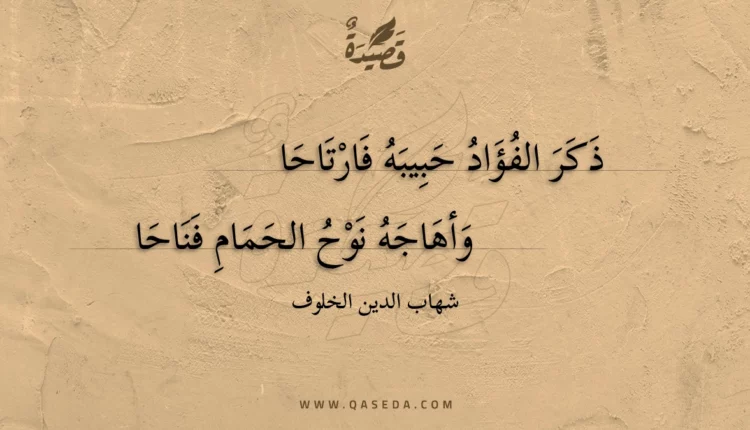 قَصِيدَةٌ
ذَكَرَ الفُؤَادُ حَبِيبَهُ فَارْتَاحَا
وَأهَاجَهُ نَوْحُ الحَمَامِ فَنَاحَا
شهاب الدين الخلوف
WWW.QASEDA.COM